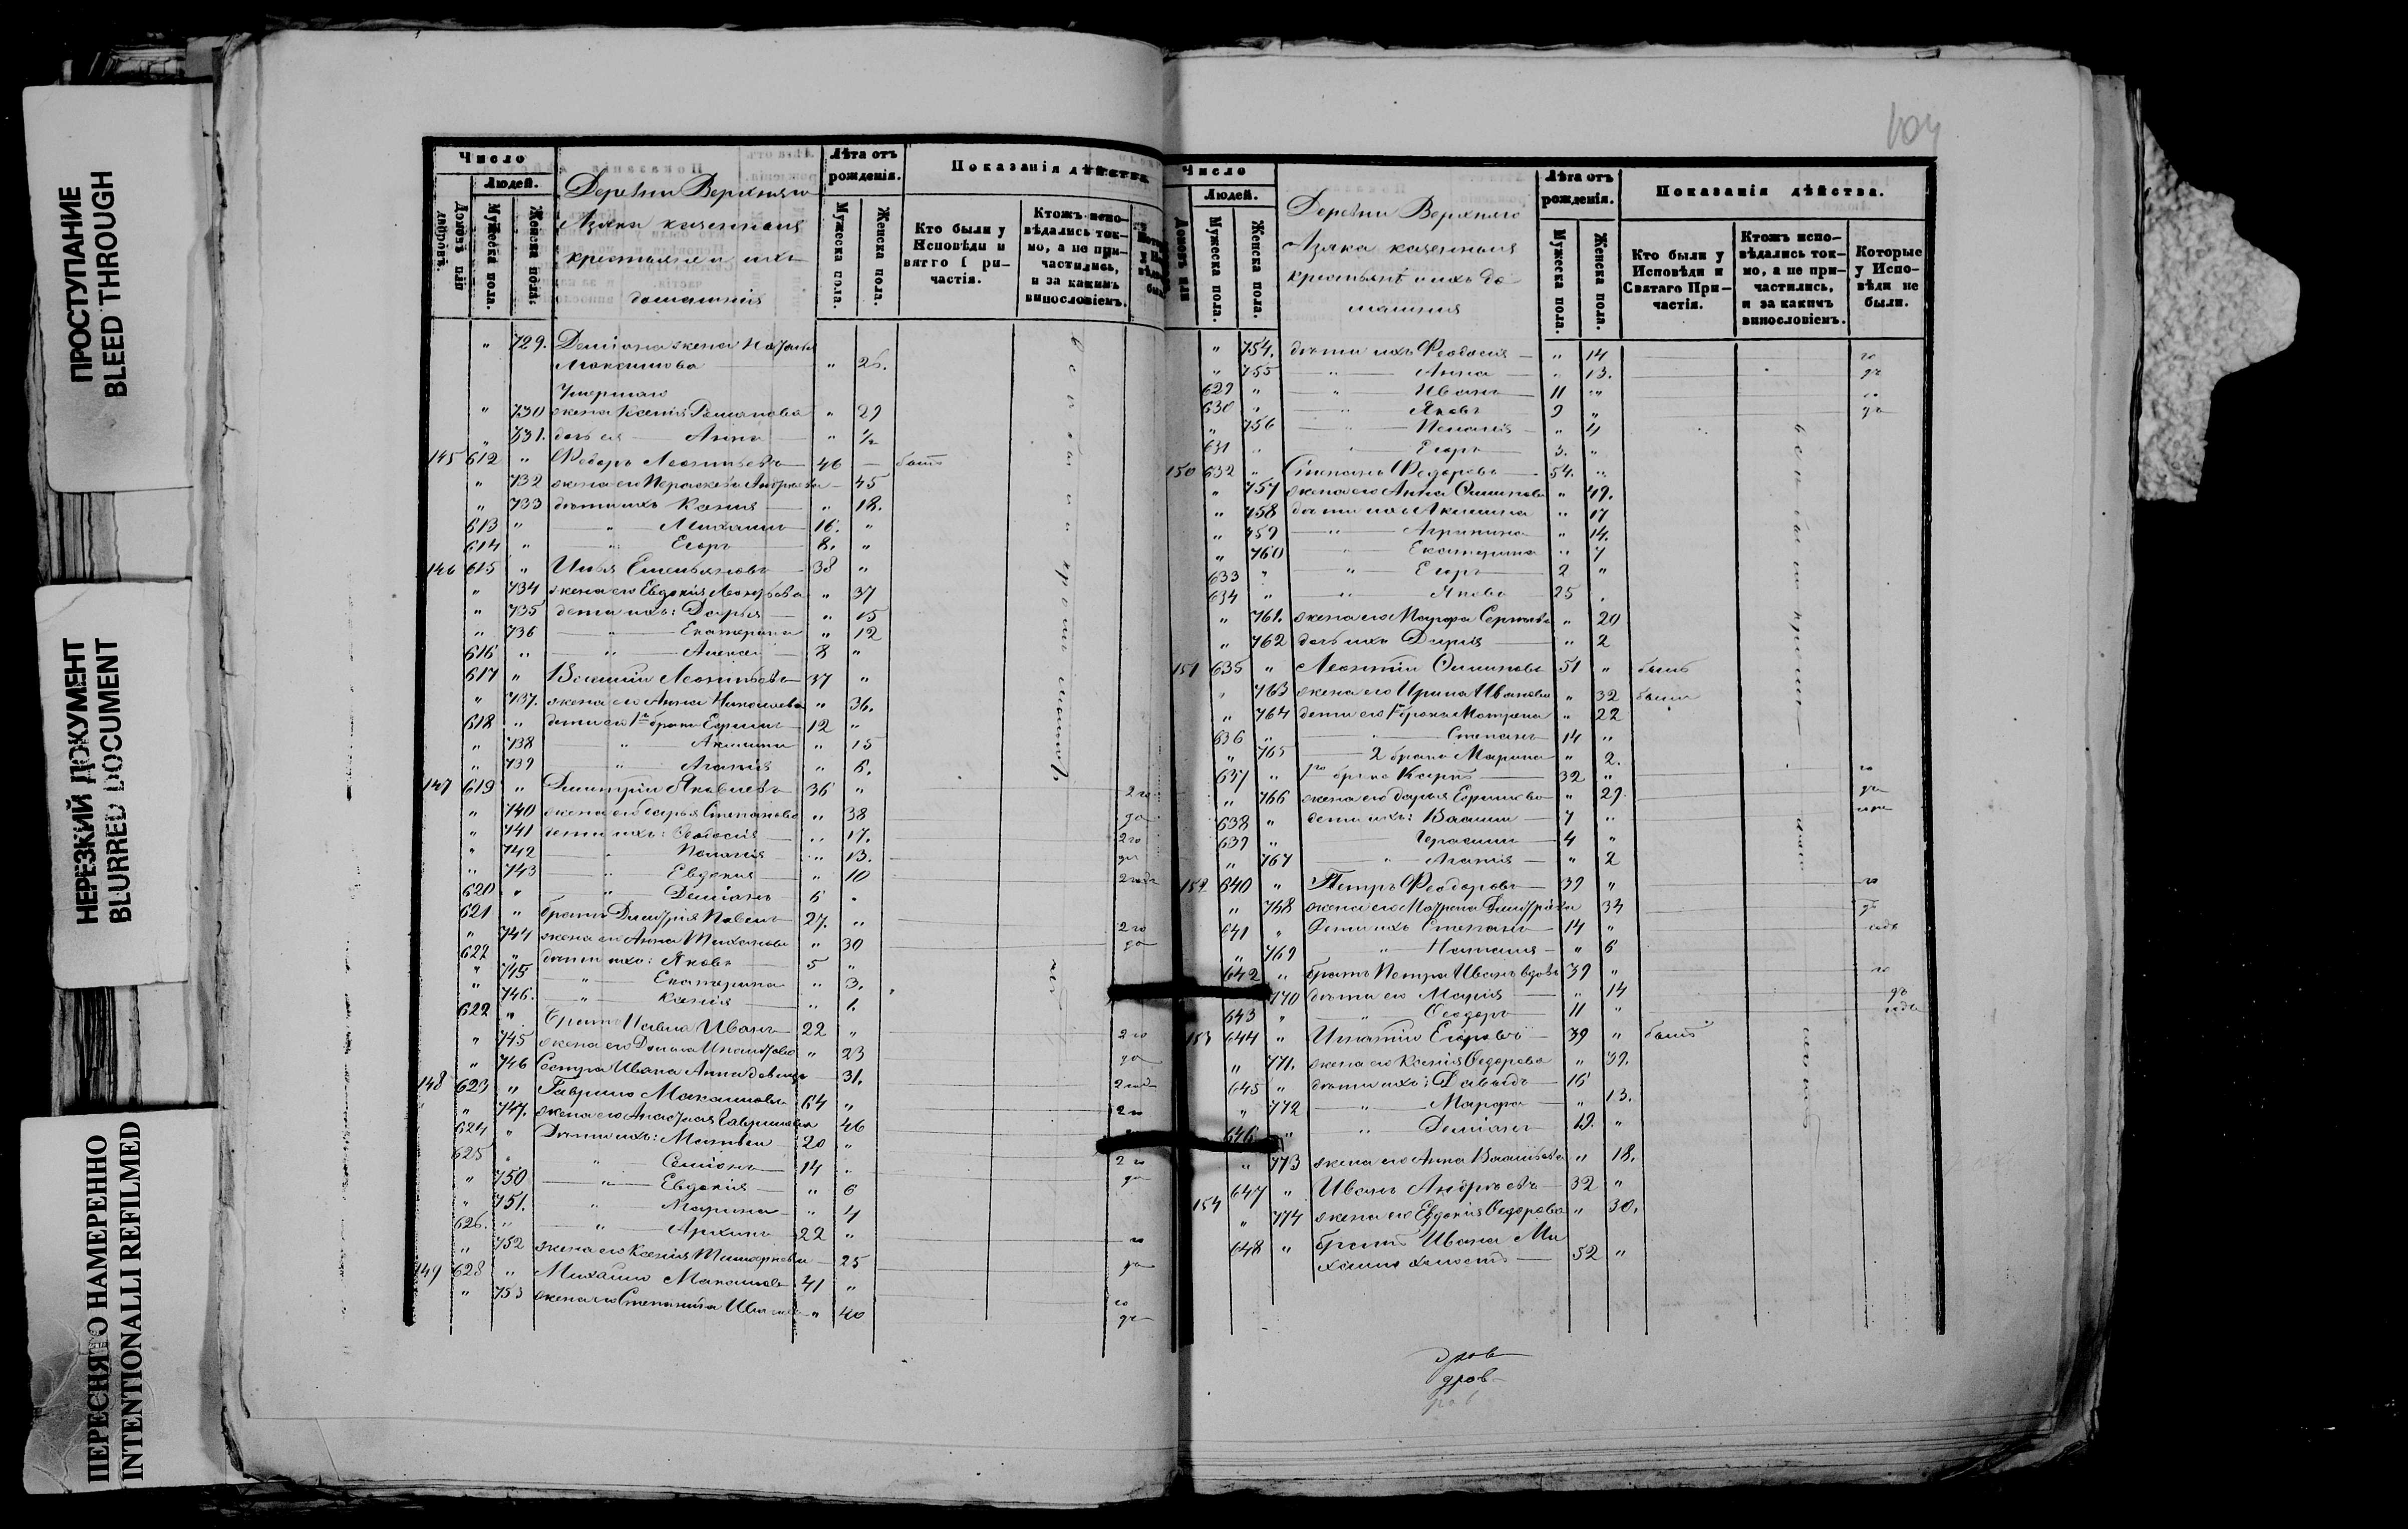 ПРОСТУПАНИЕ
BLEED THROUGH
НЕРЕЗКИЙ ДОКУМЕНТ
BLURRED DOCUMENT
ПЕРЕСНЯТО НАМЕРЕННО
INTENTIONALLI REFILMED
Число
Людей.
Мужеска пола.
Женска пола.
Деревни Верхняго
Азяка казенныя
крестьяне и ихъ
домашнія
Лѣта отъ рожденія.
Мужеска пола.
Женска пола.
Показанія дѣйства
Кто были у Исповѣди и
частія.
Ктожъ испо-
вѣдались ток-
мо, а не при-
частились,
и за какимъ
винословіемъ.
" 729. Деміана жена Наталья
Максимова " 26.
Умершаго
" 730 жена Ксенія Романова " 29
" 731. дочь ея Анна " ½
145 612 " Ѳедоръ Леонтьевъ 46 — былъ
" 732 жена его Параскева Андреева 45
" 733 дѣти ихъ Ксенія " 18.
613 " " Михаилъ 16. "
614 " " Егоръ 8. "
146 615 " Илья Емельяновъ 38 "
" 734 жена его Евдокія " 37
" 735 дети ихъ: Дарья " 15
" 736 " Екатерина " 12
616 " " Алексей 8 "
617 " Василий Леонтьевъ 37 "
" 737. жена его Анна Николаева " 36.
618 " дети его 1го брака Ефимъ 12 "
" 738 " Акилина " 15
" 739 " Агапія " 6.
147 619 " Димитрій Яковлевъ 36 "
" 740 жена его Дарья Степанова " 38
" 741 дети ихъ: Ѳеодосія " 17.
" 742 " Пелагія " 13.
" 743 " Евдокия " 10
620 " " Деміанъ 6
621 " братъ Димитрія Павелъ 27. "
" 744 жена его Анна " 30
622 " дѣти ихъ: Яковъ 5 "
" 745 " Екатерина " 3.
" 746. " Ксенія " 1.
622 " братъ Павла Иванъ 22 "
" 745 жена его " 23
" 746 Сестра Ивана Анна девица 31.
148 623 " Гаврило Максимовъ 64 "
" 747. жена его Анастасія Гаврилова 46
624 " Дѣти ихъ: Матвей 20 "
625 " Семіонъ 14 "
" 750 " Евдокія " 6
" 751. " Марина " 4
626. " " Архипъ 22 "
" 752 жена его Ксенія 25
149 628 " Михайло Максимовъ 41 "
" 753 жена его Степанида " 40
104
Число
Людей.
Мужеска пола.
Женска пола.
Деревни Верхняго
Азяка казенныя
крестьянѣ и ихъ до
машния
Лѣта отъ рожденія.
Мужеска пола.
Женска пола.
Показанія дѣйства.
Кто были у
Исповѣди и
Святаго При-
частія.
Ктожъ испо-
вѣдались ток-
мо, а не при-
частились,
и за какимъ
винословіемъ.
Которые
у Испо-
вѣди не
были.
" 754. дѣти ихъ Ѳеодосія " 14
" 755 " Анна " 13.
629 " " Иванъ 11 "
630 " " Яковъ 9 "
" 756 " Пелагія " 4
631 " " Егоръ 3. "
150 632 " Степанъ Ѳедоровъ 54. "
" 757 жена его Анна Осипова " 49.
" 758 дѣти ихъ Акилина " 17
" 759 " Агрипина " 14.
" 760 " Екатерина " 7
633 " " Егоръ 2 "
634 " " Яковъ 25
" 761. жена его Марфа Сергѣева " 20
" 762 дочь ихъ Дарія " 2
151 635 " Леонтій Осиповъ 51 " былъ
" 763 жена его Ирина Иванова " 32 была
" 764 дети его 1го брака Матрена " 22
636 " " Степанъ 14 "
" 765 2 брака Марина " 2.
637 " 1го брака Карпъ 32 "
" 766 жена его Дарья Ефимова " 29.
638 " дети ихъ: Василий 7 "
639 " Герасимъ 4 "
" 767 " Агапія " 2
152 640 " Петръ Ѳеодоровъ 39 "
" 768 жена его Матрена " 34
641 " Дети ихъ Степанъ 14 "
" 769 " Наталия " 6
642 " братъ Петра Иванъ вдовъ 39 "
770 дѣти его Марія " 14
643 " " Ѳеодоръ 11 "
153 644 " Игнатій Егоровъ 39 " былъ
" 771. жена его Ксенія Ѳедорова " 39.
645 " дѣти ихъ: Давыдъ 16
" 772 " Марфа " 13.
646 " " Деміанъ 19. "
" 773 жена его Анна Васильева " 18.
154 647 " Иванъ Андреевъ 32 "
" 774 жена его Евдокія Ѳедорова " 30.
648 " братъ Ивана Ми
хаилъ холостъ 52 "